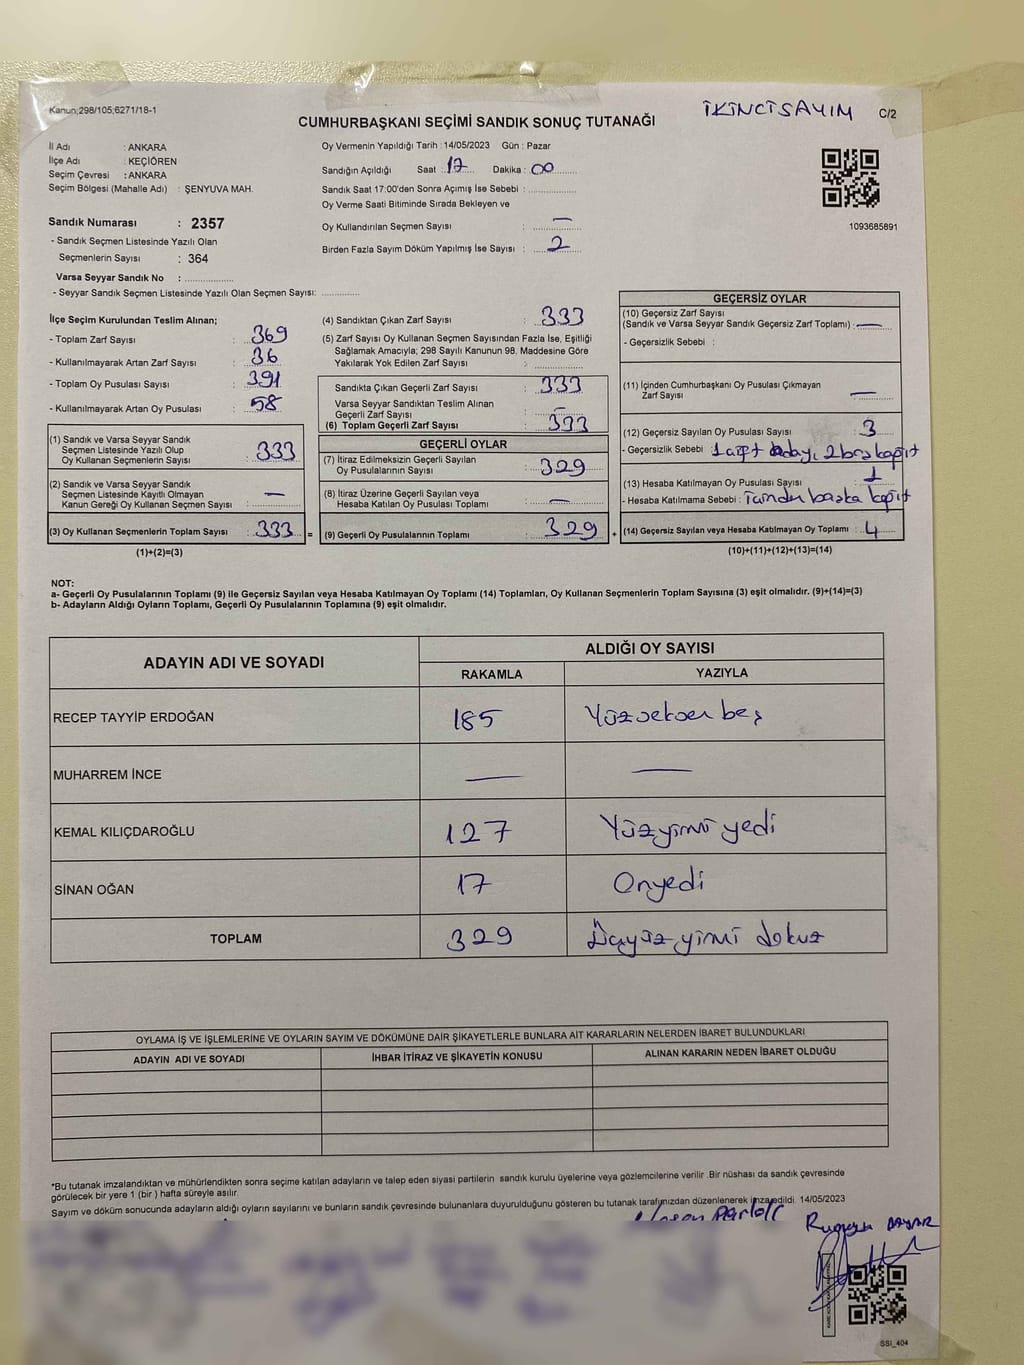 Kanun;298/105;6271/18-1
İKİNCİ SAYIM
C/2
CUMHURBAŞKANI SEÇİMİ SANDIK SONUÇ TUTANAĞI
İl Adı : ANKARA
İlçe Adı : KEÇİÖREN
Seçim Çevresi : ANKARA
Seçim Bölgesi (Mahalle Adı) : ŞENYUVA MAH.
Sandık Numarası : 2357
- Sandık Seçmen Listesinde Yazılı Olan
Seçmenlerin Sayısı : 364
Varsa Seyyar Sandık No : ..............
- Seyyar Sandık Seçmen Listesinde Yazılı Olan Seçmen Sayısı: ............
Oy Vermenin Yapıldığı Tarih : 14/05/2023 Gün : Pazar
Sandığın Açıldığı Saat : 17 Dakika : 00
Sandık Saat 17:00'dan Sonra Açımış İse Sebebi : ..............
Oy Verme Saati Bitiminde Sırada Bekleyen ve
Oy Kullandırılan Seçmen Sayısı : —
Birden Fazla Sayım Döküm Yapılmış İse Sayısı : 2
1093685891
İlçe Seçim Kurulundan Teslim Alınan;
- Toplam Zarf Sayısı : 369
- Kullanılmayarak Artan Zarf Sayısı : 36
- Toplam Oy Pusulası Sayısı : 391
- Kullanılmayarak Artan Oy Pusulası : 58
(1) Sandık ve Varsa Seyyar Sandık
Seçmen Listesinde Yazılı Olup
Oy Kullanan Seçmenlerin Sayısı : 333
(2) Sandık ve Varsa Seyyar Sandık
Seçmen Listesinde Kayıtlı Olmayan
Kanun Gereği Oy Kullanan Seçmen Sayısı : —
(3) Oy Kullanan Seçmenlerin Toplam Sayısı : 333 =
(1)+(2)=(3)
(4) Sandıktan Çıkan Zarf Sayısı : 333
(5) Zarf Sayısı Oy Kullanan Seçmen Sayısından Fazla İse, Eşitliği
Sağlamak Amacıyla; 298 Sayılı Kanunun 98. Maddesine Göre
Yakılarak Yok Edilen Zarf Sayısı : ..............
Sandıkta Çıkan Geçerli Zarf Sayısı : 333
Varsa Seyyar Sandıktan Teslim Alınan
Geçerli Zarf Sayısı : —
(6) Toplam Geçerli Zarf Sayısı : 333
GEÇERLİ OYLAR
(7) İtiraz Edilmeksizin Geçerli Sayılan
Oy Pusulalarının Sayısı : 329
(8) İtiraz Üzerine Geçerli Sayılan veya
Hesaba Katılan Oy Pusulası Toplamı : —
(9) Geçerli Oy Pusulalarının Toplamı : 329 +
GEÇERSİZ OYLAR
(10) Geçersiz Zarf Sayısı
(Sandık ve Varsa Seyyar Sandık Geçersiz Zarf Toplamı) : —
- Geçersizlik Sebebi :
(11) İçinden Cumhurbaşkanı Oy Pusulası Çıkmayan
Zarf Sayısı : —
(12) Geçersiz Sayılan Oy Pusulası Sayısı : 3
- Geçersizlik Sebebi : 1 2 boş kağıt
(13) Hesaba Katılmayan Oy Pusulası Sayısı : 1
- Hesaba Katılmama Sebebi : İçinden başka kağıt
(14) Geçersiz Sayılan veya Hesaba Katılmayan Oy Toplamı : 4
(10)+(11)+(12)+(13)=(14)
NOT:
a- Geçerli Oy Pusulalarının Toplamı (9) ile Geçersiz Sayılan veya Hesaba Katılmayan Oy Toplamı (14) Toplamları, Oy Kullanan Seçmenlerin Toplam Sayısına (3) eşit olmalıdır. (9)+(14)=(3)
b- Adayların Aldığı Oyların Toplamı, Geçerli Oy Pusulalarının Toplamına (9) eşit olmalıdır.
ADAYIN ADI VE SOYADI
ALDIĞI OY SAYISI
RAKAMLA YAZIYLA
RECEP TAYYİP ERDOĞAN 185 Yüzseksen beş
MUHARREM İNCE — —
KEMAL KILIÇDAROĞLU 127 Yüzyirmi yedi
SİNAN OĞAN 17 Onyedi
TOPLAM 329 Üçyüz yirmi dokuz
OYLAMA İŞ VE İŞLEMLERİNE VE OYLARIN SAYIM VE DÖKÜMÜNE DAİR ŞİKAYETLERLE BUNLARA AİT KARARLARIN NELERDEN İBARET BULUNDUKLARI
ADAYIN ADI VE SOYADI İHBAR İTİRAZ VE ŞİKAYETİN KONUSU ALINAN KARARIN NEDEN İBARET OLDUĞU
*Bu tutanak imzalandıktan ve mühürlendikten sonra seçime katılan adayların ve talep eden siyasi partilerin sandık kurulu üyelerine veya gözlemcilerine verilir .Bir nüshası da sandık çevresinde
görülecek bir yere 1 (bir ) hafta süreyle asılır.
Sayım ve döküm sonucunda adayların aldığı oyların sayılarını ve bunların sandık çevresinde bulunanlara duyurulduğunu gösteren bu tutanak tarafımızdan düzenlenerek imza edildi. 14/05/2023
SSI_404